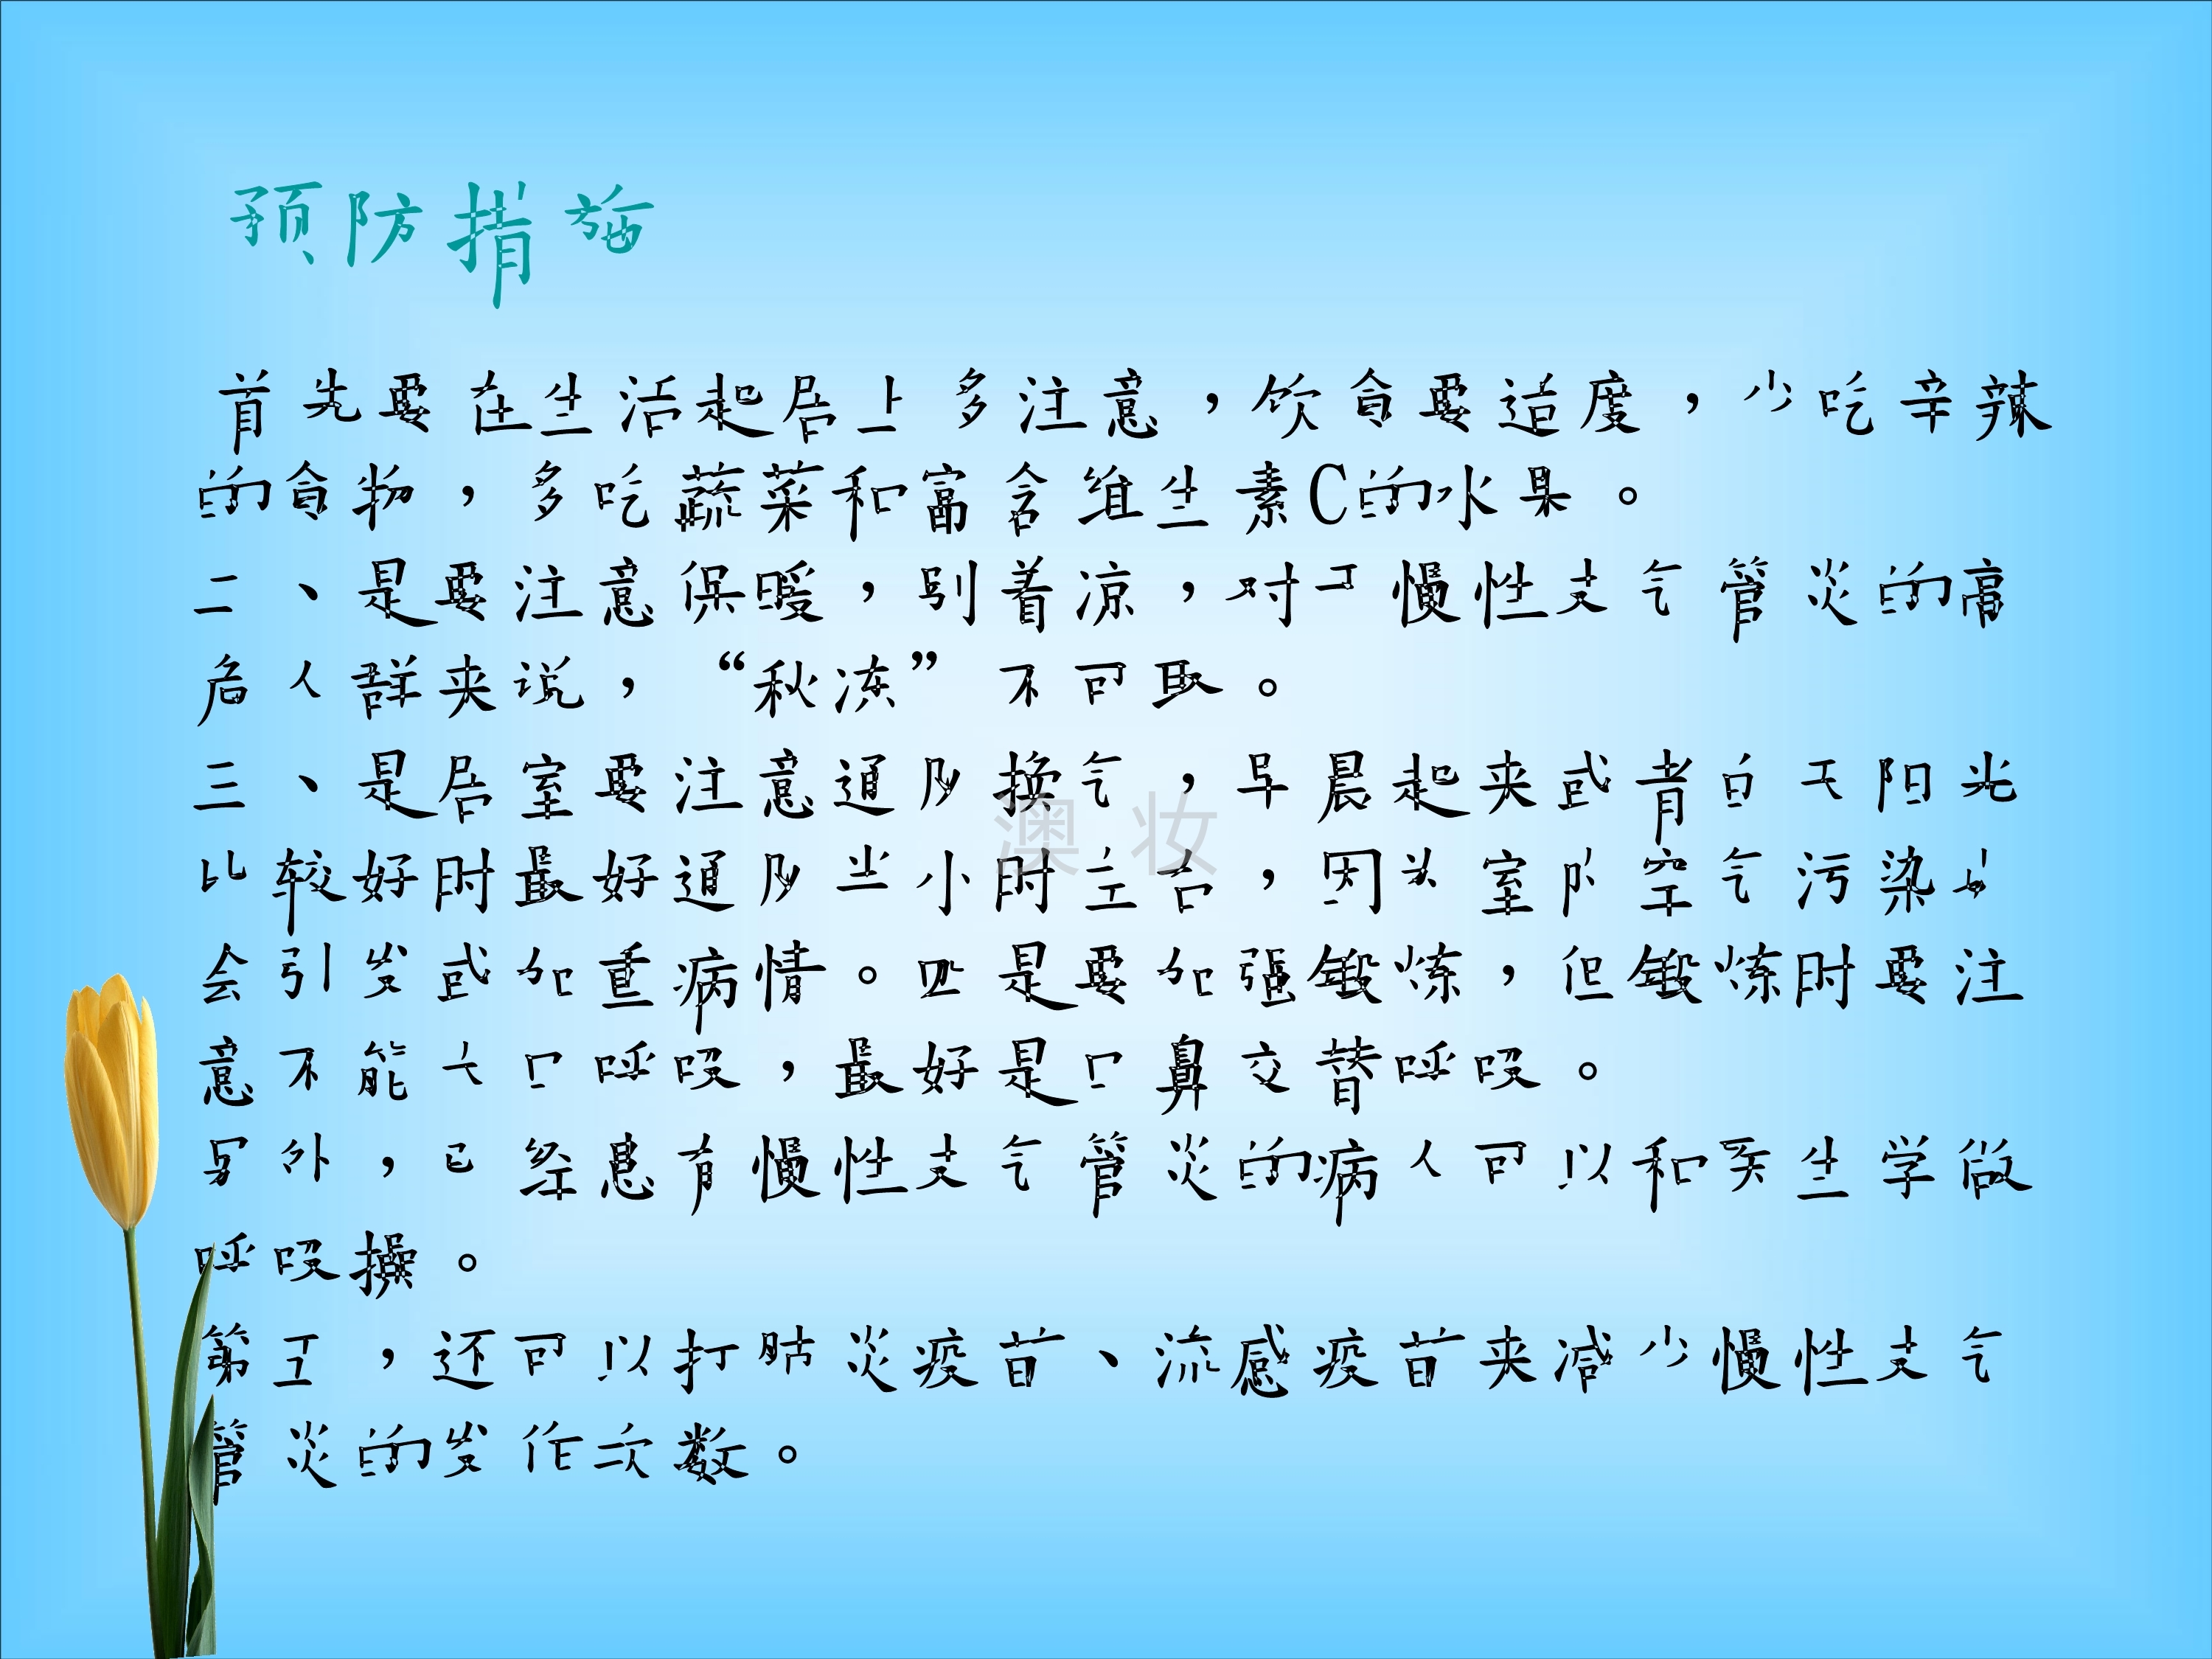 预防措施
首先要在生活起居上多注意，饮食要适度，少吃辛辣
的食物，多吃蔬菜和富含维生素C的水果。
二、是要注意保暖，别着凉，对于慢性支气管炎的高
危人群来说，“秋冻”不可取。
三、是居室要注意通风换气，早晨起来或者白天阳光
比较好时最好通风半小时左右，因为室内空气污染也
会引发或加重病情。四是要加强锻炼，但锻炼时要注
意不能大口呼吸，最好是口鼻交替呼吸。
另外，已经患有慢性支气管炎的病人可以和医生学做
呼吸操。
第五，还可以打肺炎疫苗、流感疫苗来减少慢性支气
管炎的发作次数。
澳妆